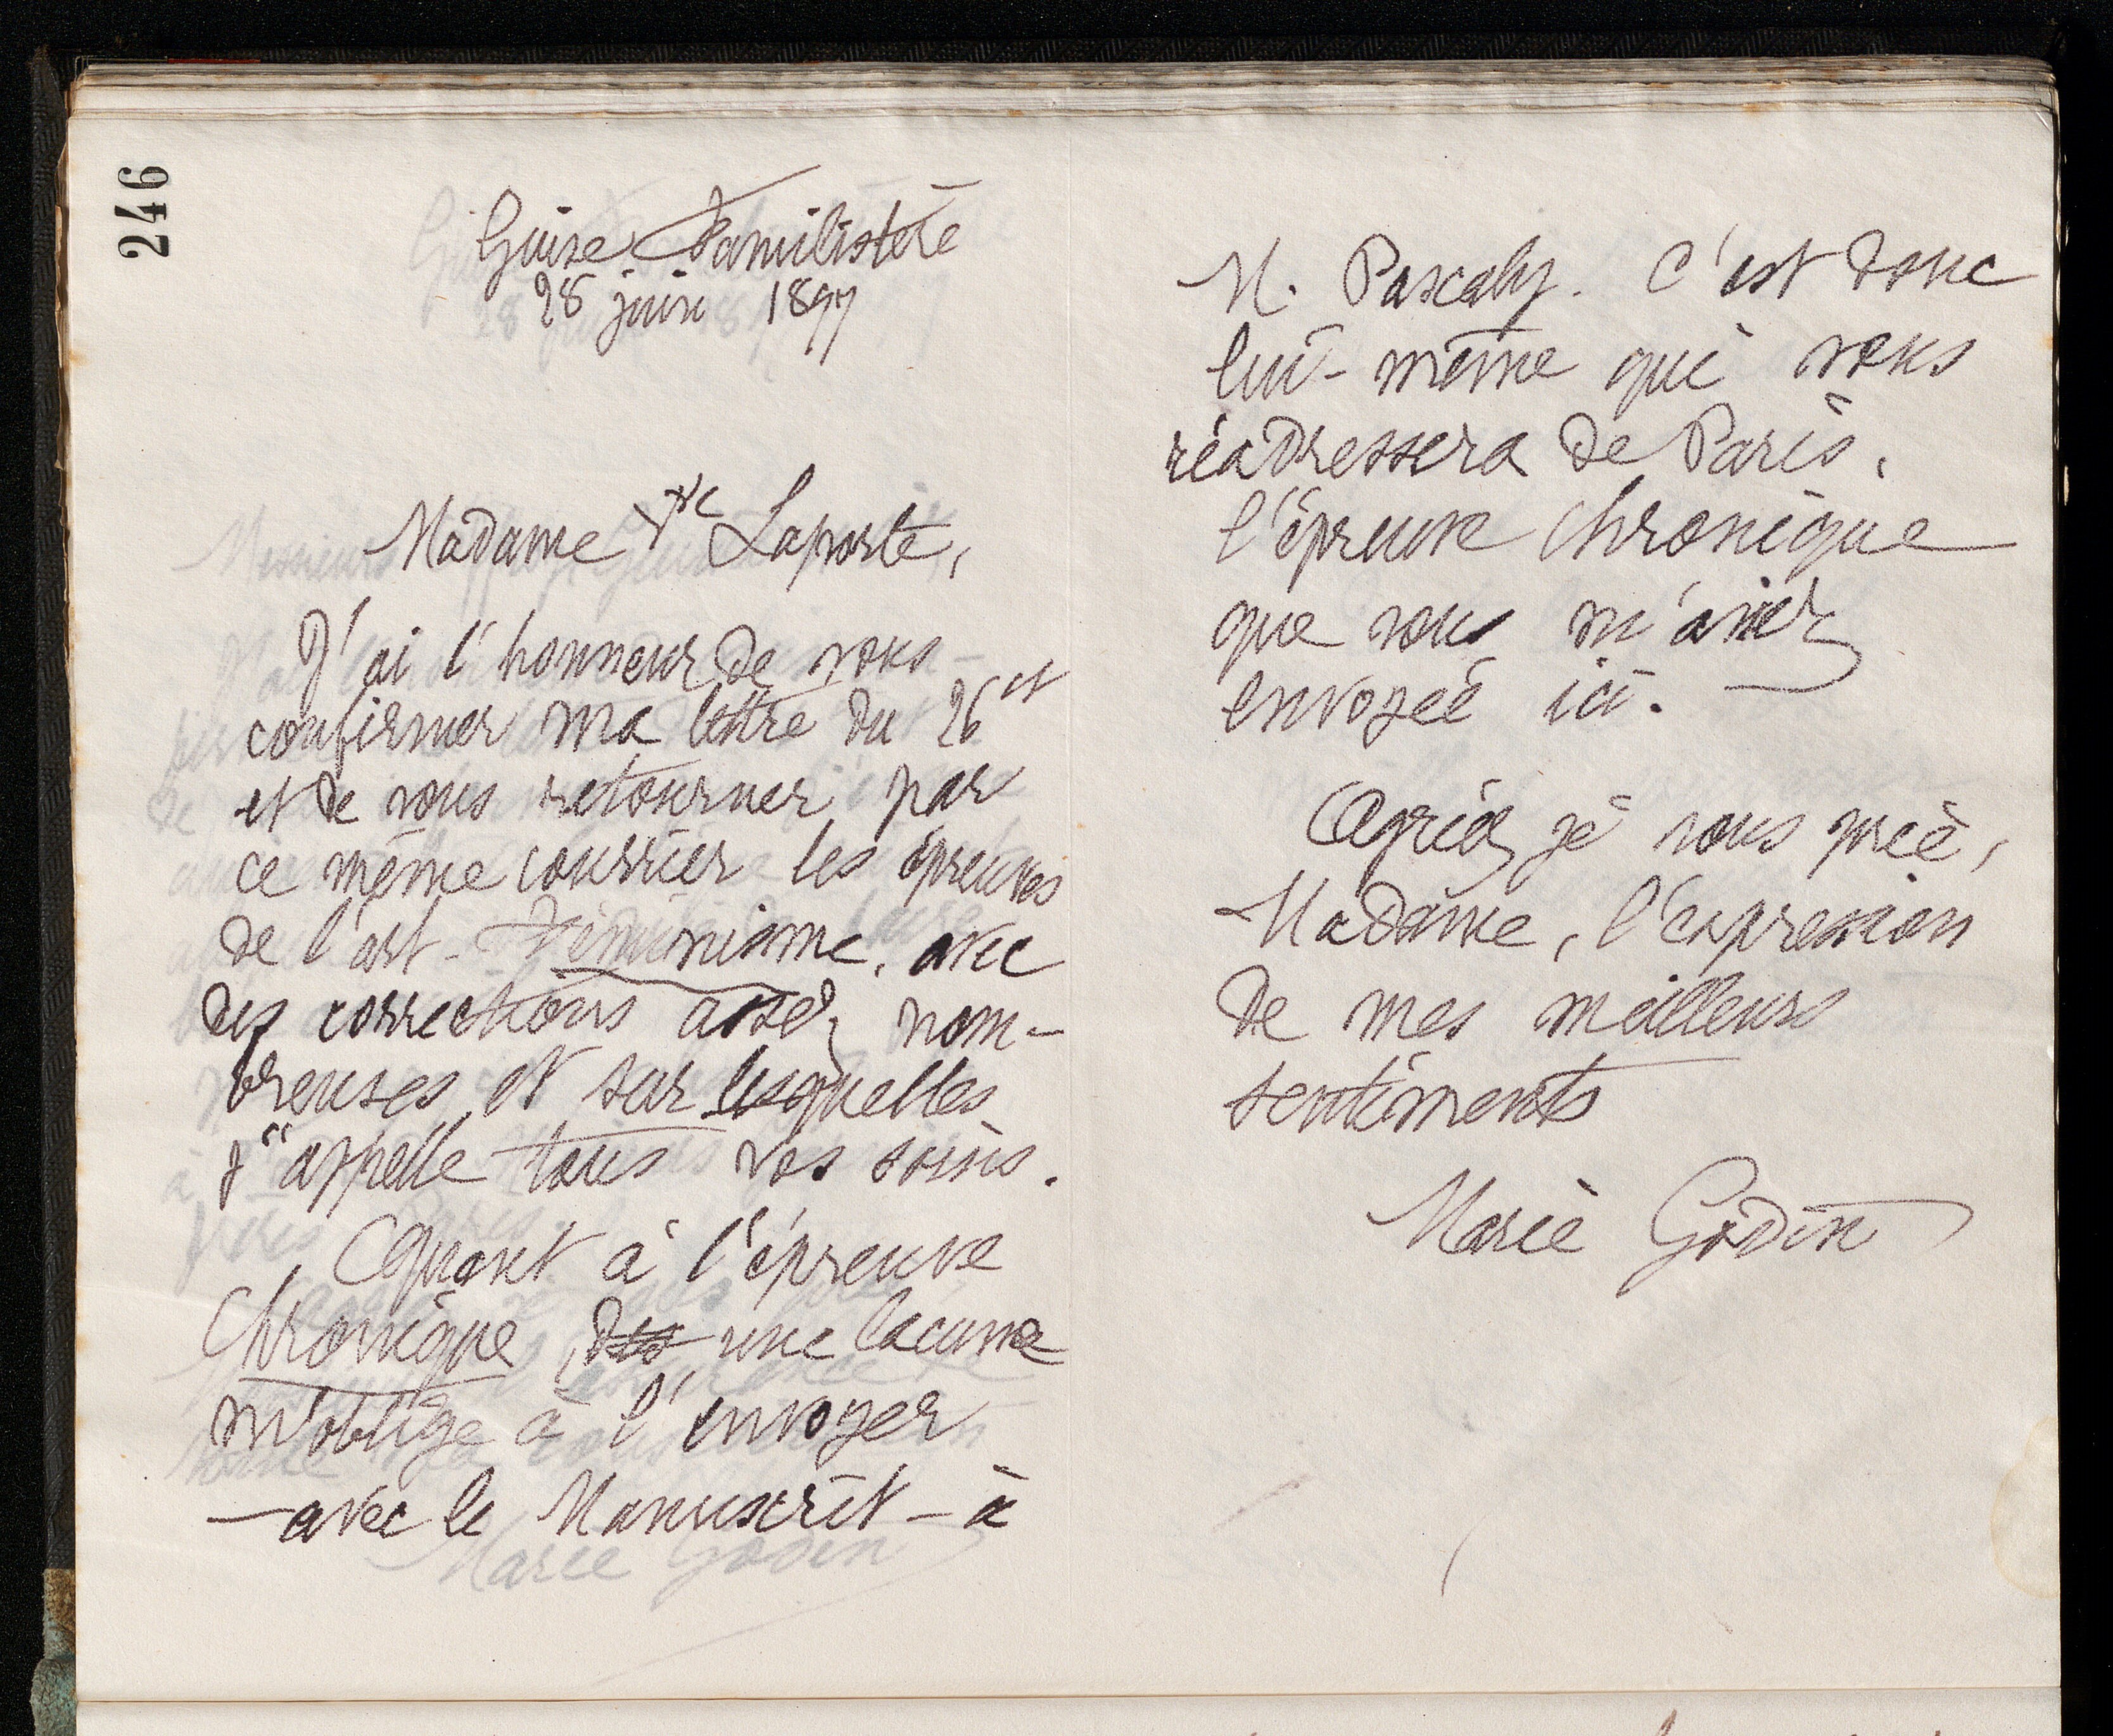 246
Guise Familistère
28 juin 1897
Madame Vve Laporte,
J'ai l'honneur de vous
confirmer ma lettre du 26 ct
et de vous retourner par
ce même courrier les épreuves
de l'art. Féminisme, avec
des corrections assez nom-
breuses et sur lesquelles
j'appelle tous vos soins.
Quant à l'épreuve
Chronique, des une lacune
m'oblige à l'envoyer
— avec le Manuscrit — à
M. Pascaly. C'est donc
lui-même qui vous
réadressera de Paris,
l'épreuve Chronique
que vous m'aviez
envoyée ici.
Agréez, je vous prie,
Madame, l'expression
de mes meilleurs
sentiments
Marie Godin